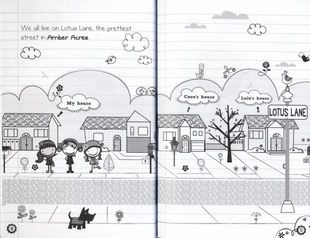 We all live on Lotus Lane, the prettest
street in Amber Acres
My house
Coco's house
Lulu's house
LOTUS LANE